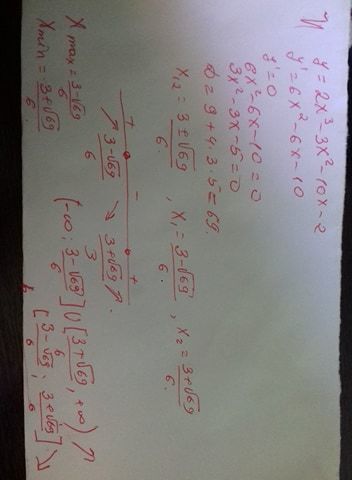 y = 2x³-3x²-10x-2
y' = 6x²-6x-10
y'=0
6x²-6x-10=0
3x²-3x-5=0
D = 9+4·3·5=69.
x₁,₂ = (3±√69)/6, x₁ = (3-√69)/6, x₂ = (3+√69)/6
+ - +
↗ (3-√69)/6 ↘ (3+√69)/3 ↗
(-∞; (3-√69)/6] ∪ [(3+√69)/6, +∞) ↗
[(3-√69)/6; (3+√69)/6] ↘
Xmax = (3-√69)/6
Xmin = (3+√69)/6